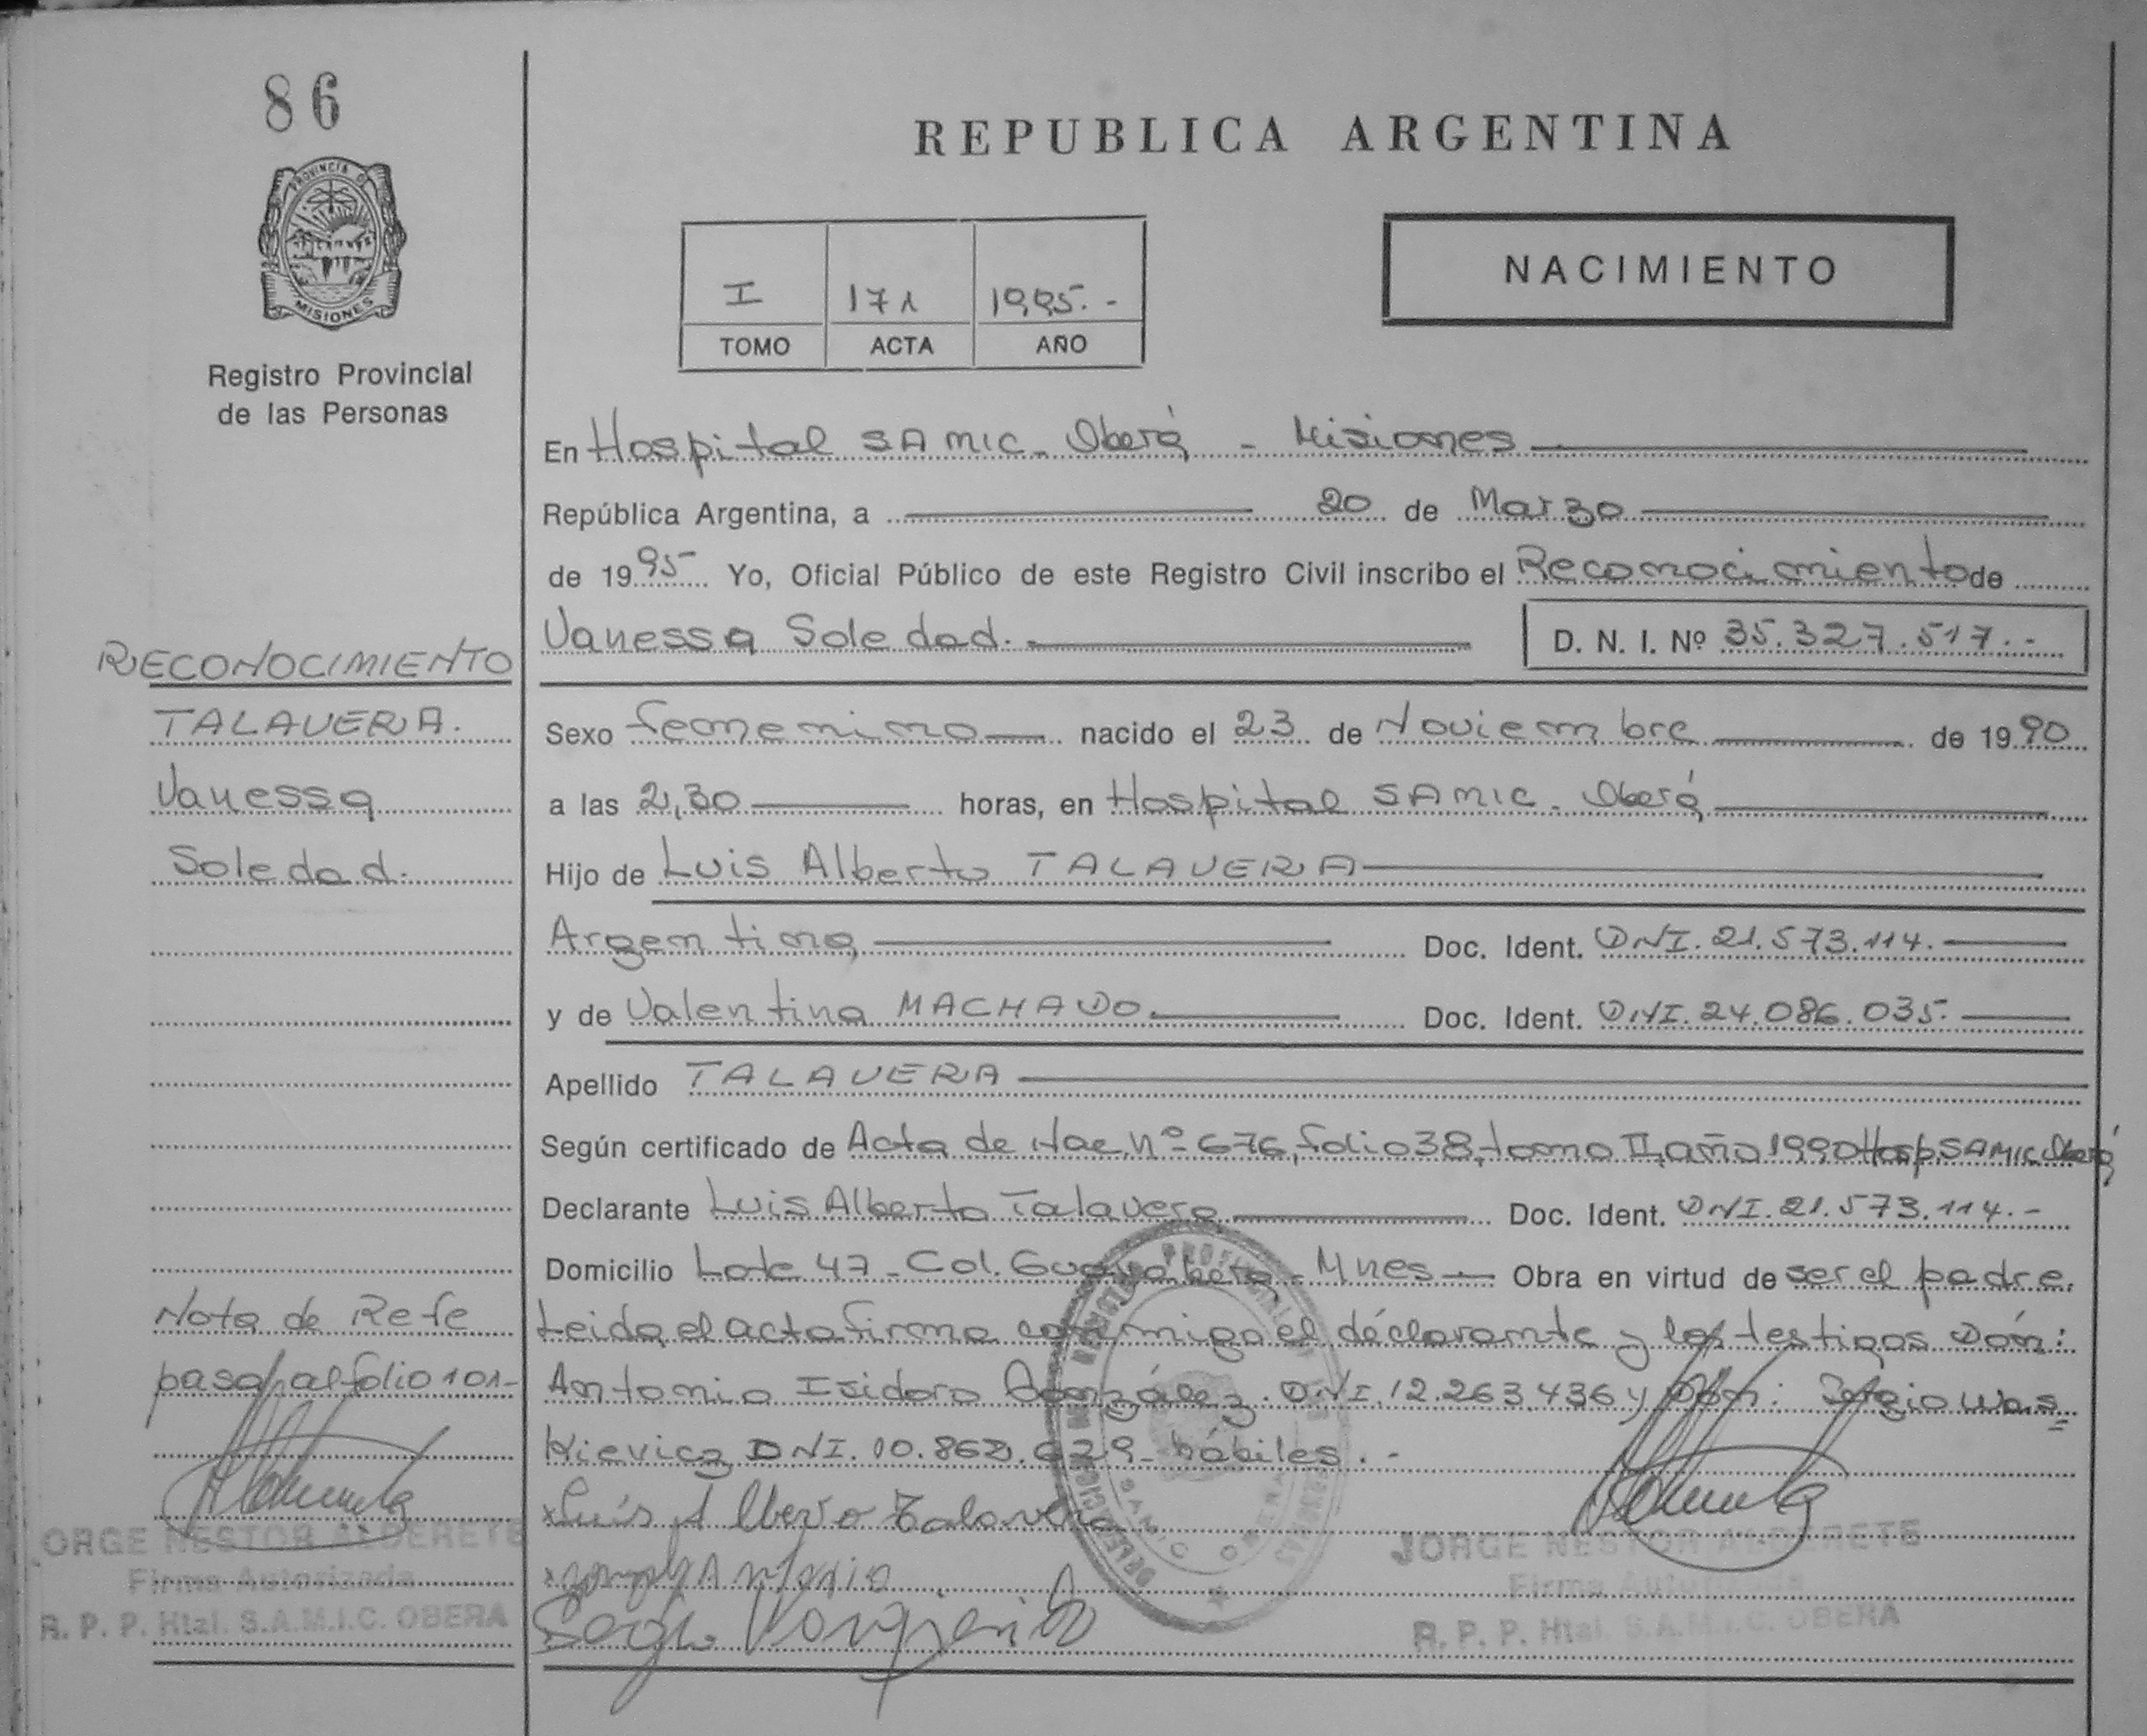 86
PROVINCIA DE
MISIONES
Registro Provincial
de las Personas
REPUBLICA ARGENTINA
I 171 1995.-
TOMO ACTA AÑO
NACIMIENTO
En Hospital SAMIC - Oberá - Misiones
República Argentina, a 20 de Marzo
de 1995 Yo, Oficial Público de este Registro Civil inscribo el Reconocimiento de
Vanessa Soledad.
D. N. I. Nº 35.327.517.-
RECONOCIMIENTO
TALAVERA.
Vanessa
Soledad.
Sexo femenino nacido el 23 de Noviembre de 1990
a las 2,30 horas, en Hospital SAMIC - Oberá
Hijo de Luis Alberto TALAVERA
Argentino Doc. Ident. DNI.21.573.114.
y de Valentina MACHADO Doc. Ident. DNI.24.086.035.
Apellido TALAVERA
Según certificado de Acta de Nac. Nº 676, folio 38, tomo II, año 1990 Hosp. SAMIC Oberá
Declarante Luis Alberto Talavera Doc. Ident. DNI.21.573.114.-
Domicilio Lote 47 - Col. Mnes Obra en virtud de ser el padre.
Leida el acta firma conmigo el declarante y los testigos Don:
Antonio Isidoro González. DNI.12.263.436 y Don: Sergio Was=
Kievicz DNI. 10.868.629 - hábiles.-
Nota de Refe
pasa al folio 101-
Luis Alberto Talavera
JORGE NESTOR ALDERETE
Firma Autorizada
R. P. P. Htal. S.A.M.I.C. OBERA
ORGE NESTOR ALDERETE
Firma Autorizada
R. P. P. Htal. S.A.M.I.C. OBERA